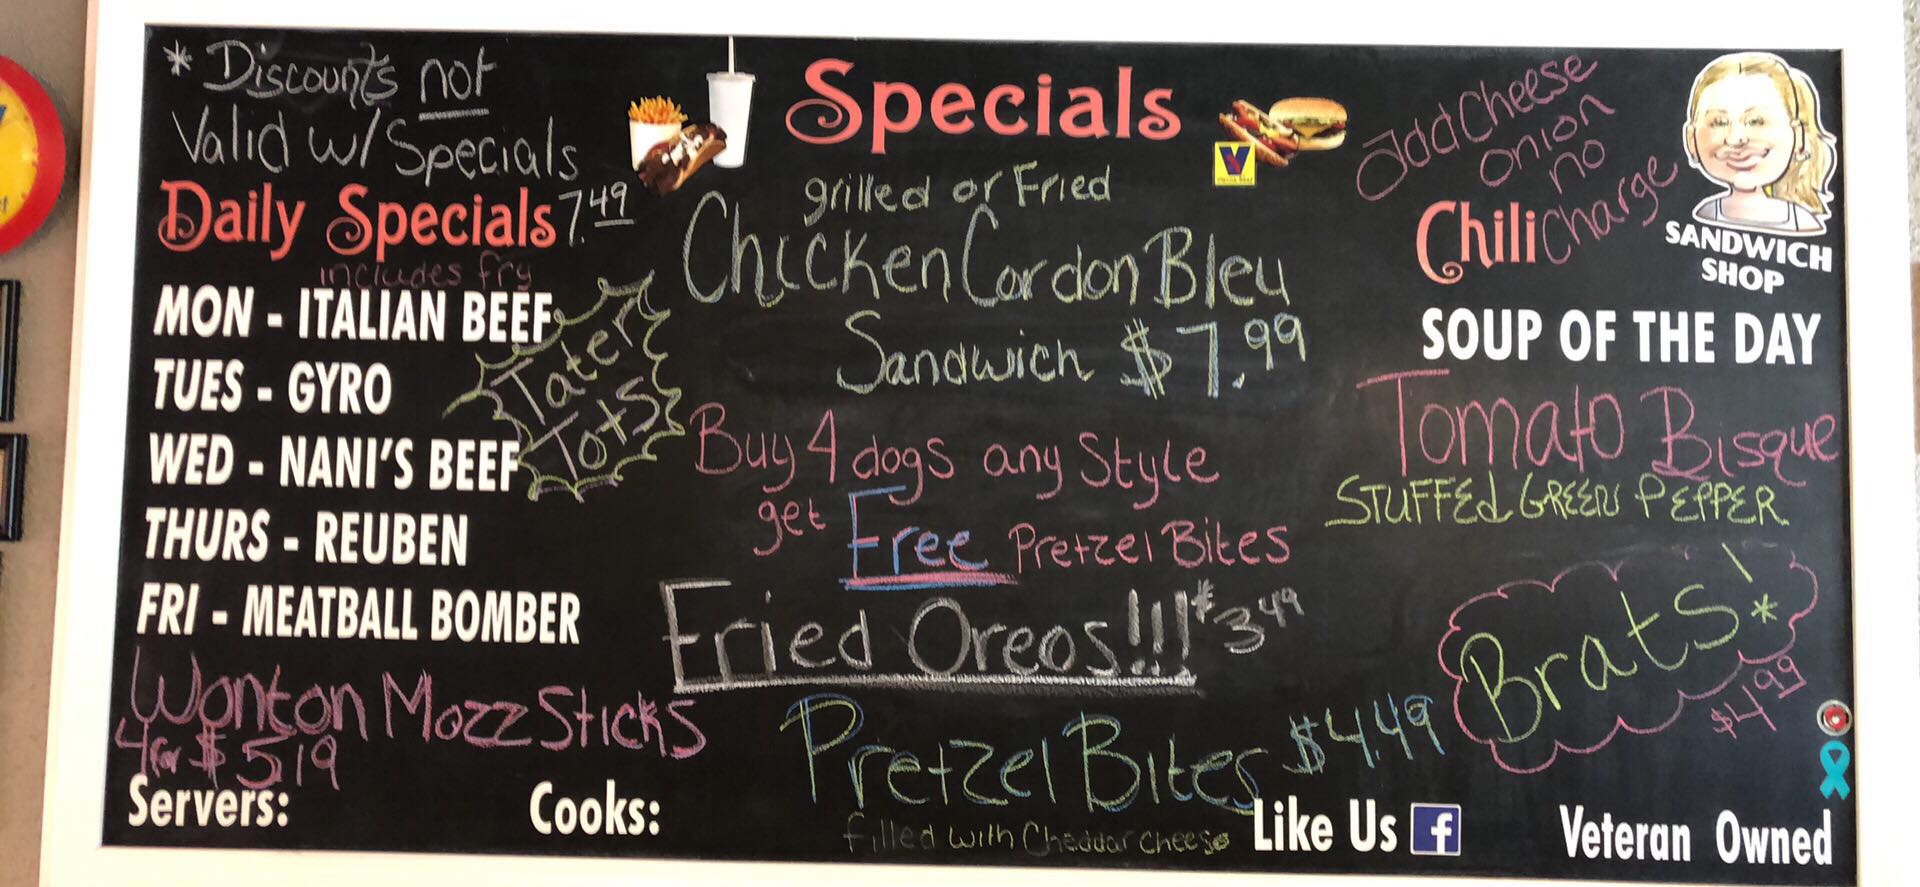 * Discounts not
Valid w/ Specials
Daily Specials 7.49
includes fry
MON - ITALIAN BEEF
TUES - GYRO
WED - NANI'S BEEF
THURS - REUBEN
FRI - MEATBALL BOMBER
Tater
Tots
Wonton Mozz Sticks
4 for $5.19
Servers:
Cooks:
Specials
grilled or Fried
Chicken Cordon Bleu
Sandwich $7.99
Buy 4 dogs any Style
get Free Pretzel Bites
Fried Oreos!!! $3.49
Pretzel Bites $4.49
filled with Cheddar Cheese
Like Us f
add Cheese
onion
no
Charge
Chili
SANDWICH
SHOP
SOUP OF THE DAY
Tomato Bisque
STUFFEd GREEN PEPPER
Brats! *
$4.99
Veteran Owned